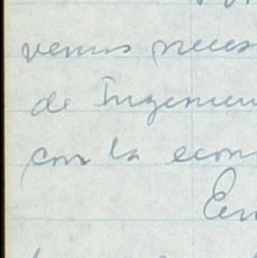 vemos neces
de Ingenier
con la econ
En